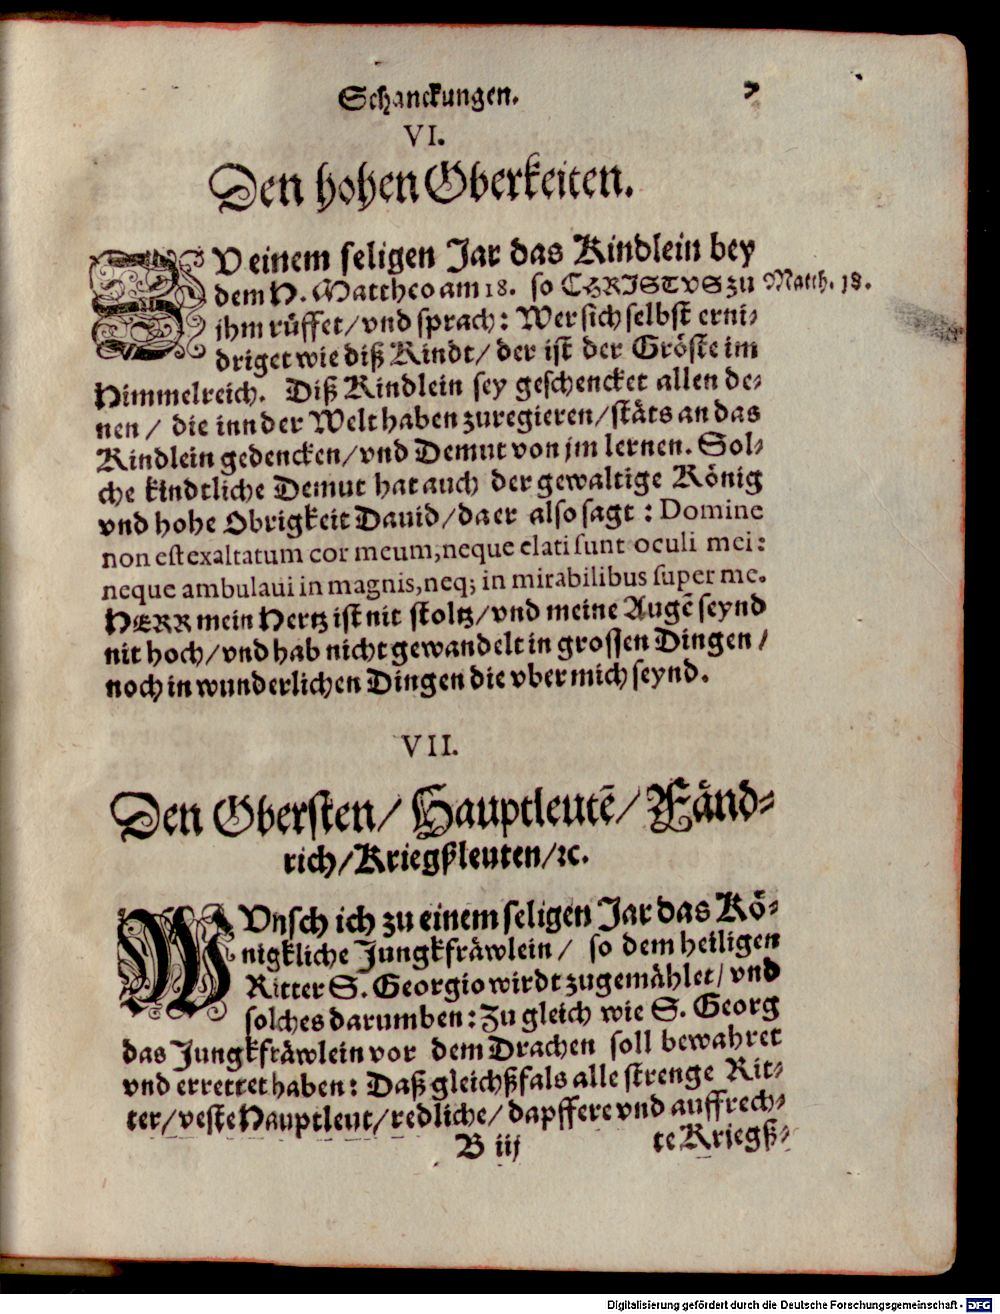 Schanckungen. 7
VI.
Den hohen Oberkeiten.
ZV einem seligen Jar das Kindlein bey
dem H. Mattheo am 18. so CHRISTVS zu Matth. 18.
ihm rüffet/ vnd sprach: Wer sich selbst erni⸗
driget wie diß Kindt/ der ist der Gröste im
Himmelreich. Diß Kindlein sey geschencket allen de⸗
nen/ die inn der Welt haben zuregieren/ stäts an das
Kindlein gedencken/ vnd Demut von jm lernen. Sol⸗
che kindtliche Demut hat auch der gewaltige König
vnd hohe Obrigkeit Dauid/ da er also sagt: Domine
non est exaltatum cor meum, neque elati sunt oculi mei:
neque ambulaui in magnis, neq; in mirabilibus super me.
HERR mein Hertz ist nit stoltz/ vnd meine Augē seynd
nit hoch/ vnd hab nicht gewandelt in grossen Dingen/
noch in wunderlichen Dingen die vber mich seynd.
VII.
Den Obersten/ Hauptleutē/ Fänd⸗
rich/ Kriegßleuten/ ꝛc.
WVnsch ich zu einem seligen Jar das Kö⸗
nigkliche Jungkfräwlein/ so dem heiligen
Ritter S. Georgio wirdt zugemählet/ vnd
solches darumben: Zu gleich wie S. Georg
das Jungkfräwlein vor dem Drachen soll bewahret
vnd errettet haben: Daß gleichßfals alle strenge Rit⸗
ter/ veste Hauptleut/ redliche/ dapffere vnd auffrech⸗
B iij te Kriegß⸗
Digitalisierung gefördert durch die Deutsche Forschungsgemeinschaft - DFG